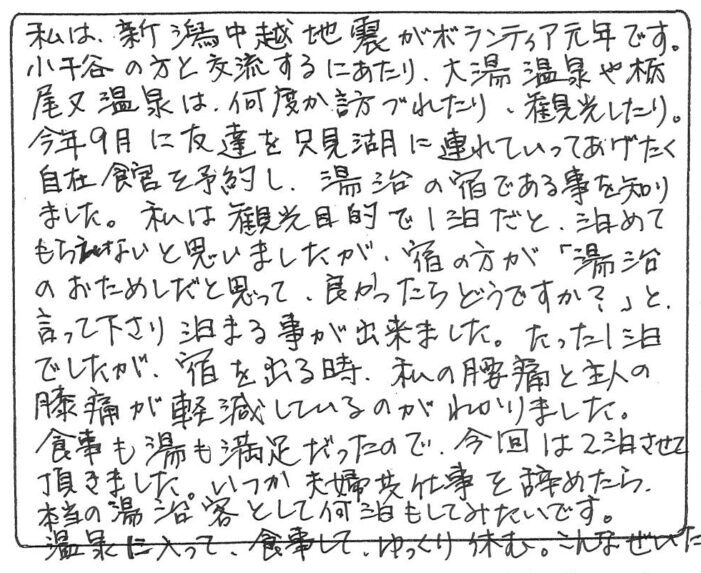 私は、新潟中越地震がボランティア元年です。
小千谷の方と交流するにあたり、大湯温泉や栃
尾又温泉は、何度か訪づれたり、観光したり。
今年9月に友達を只見湖に連れていってあげたく
自在館を予約し、湯治の宿である事を知り
ました。私は観光目的で1泊だと、泊めて
もらえないと思いましたが、宿の方が「湯治
のおためしだと思って、良かったらどうですか?」と、
言って下さり泊まる事が出来ました。たった1泊
でしたが、宿を出る時、私の腰痛と主人の
膝痛が軽減しているのがわかりました。
食事も湯も満足だったので、今回は2泊させて
頂きました。いつか夫婦共仕事を辞めたら、
本当の湯治客として何泊もしてみたいです。
温泉に入って、食事して、ゆっくり休む。こんなぜいた